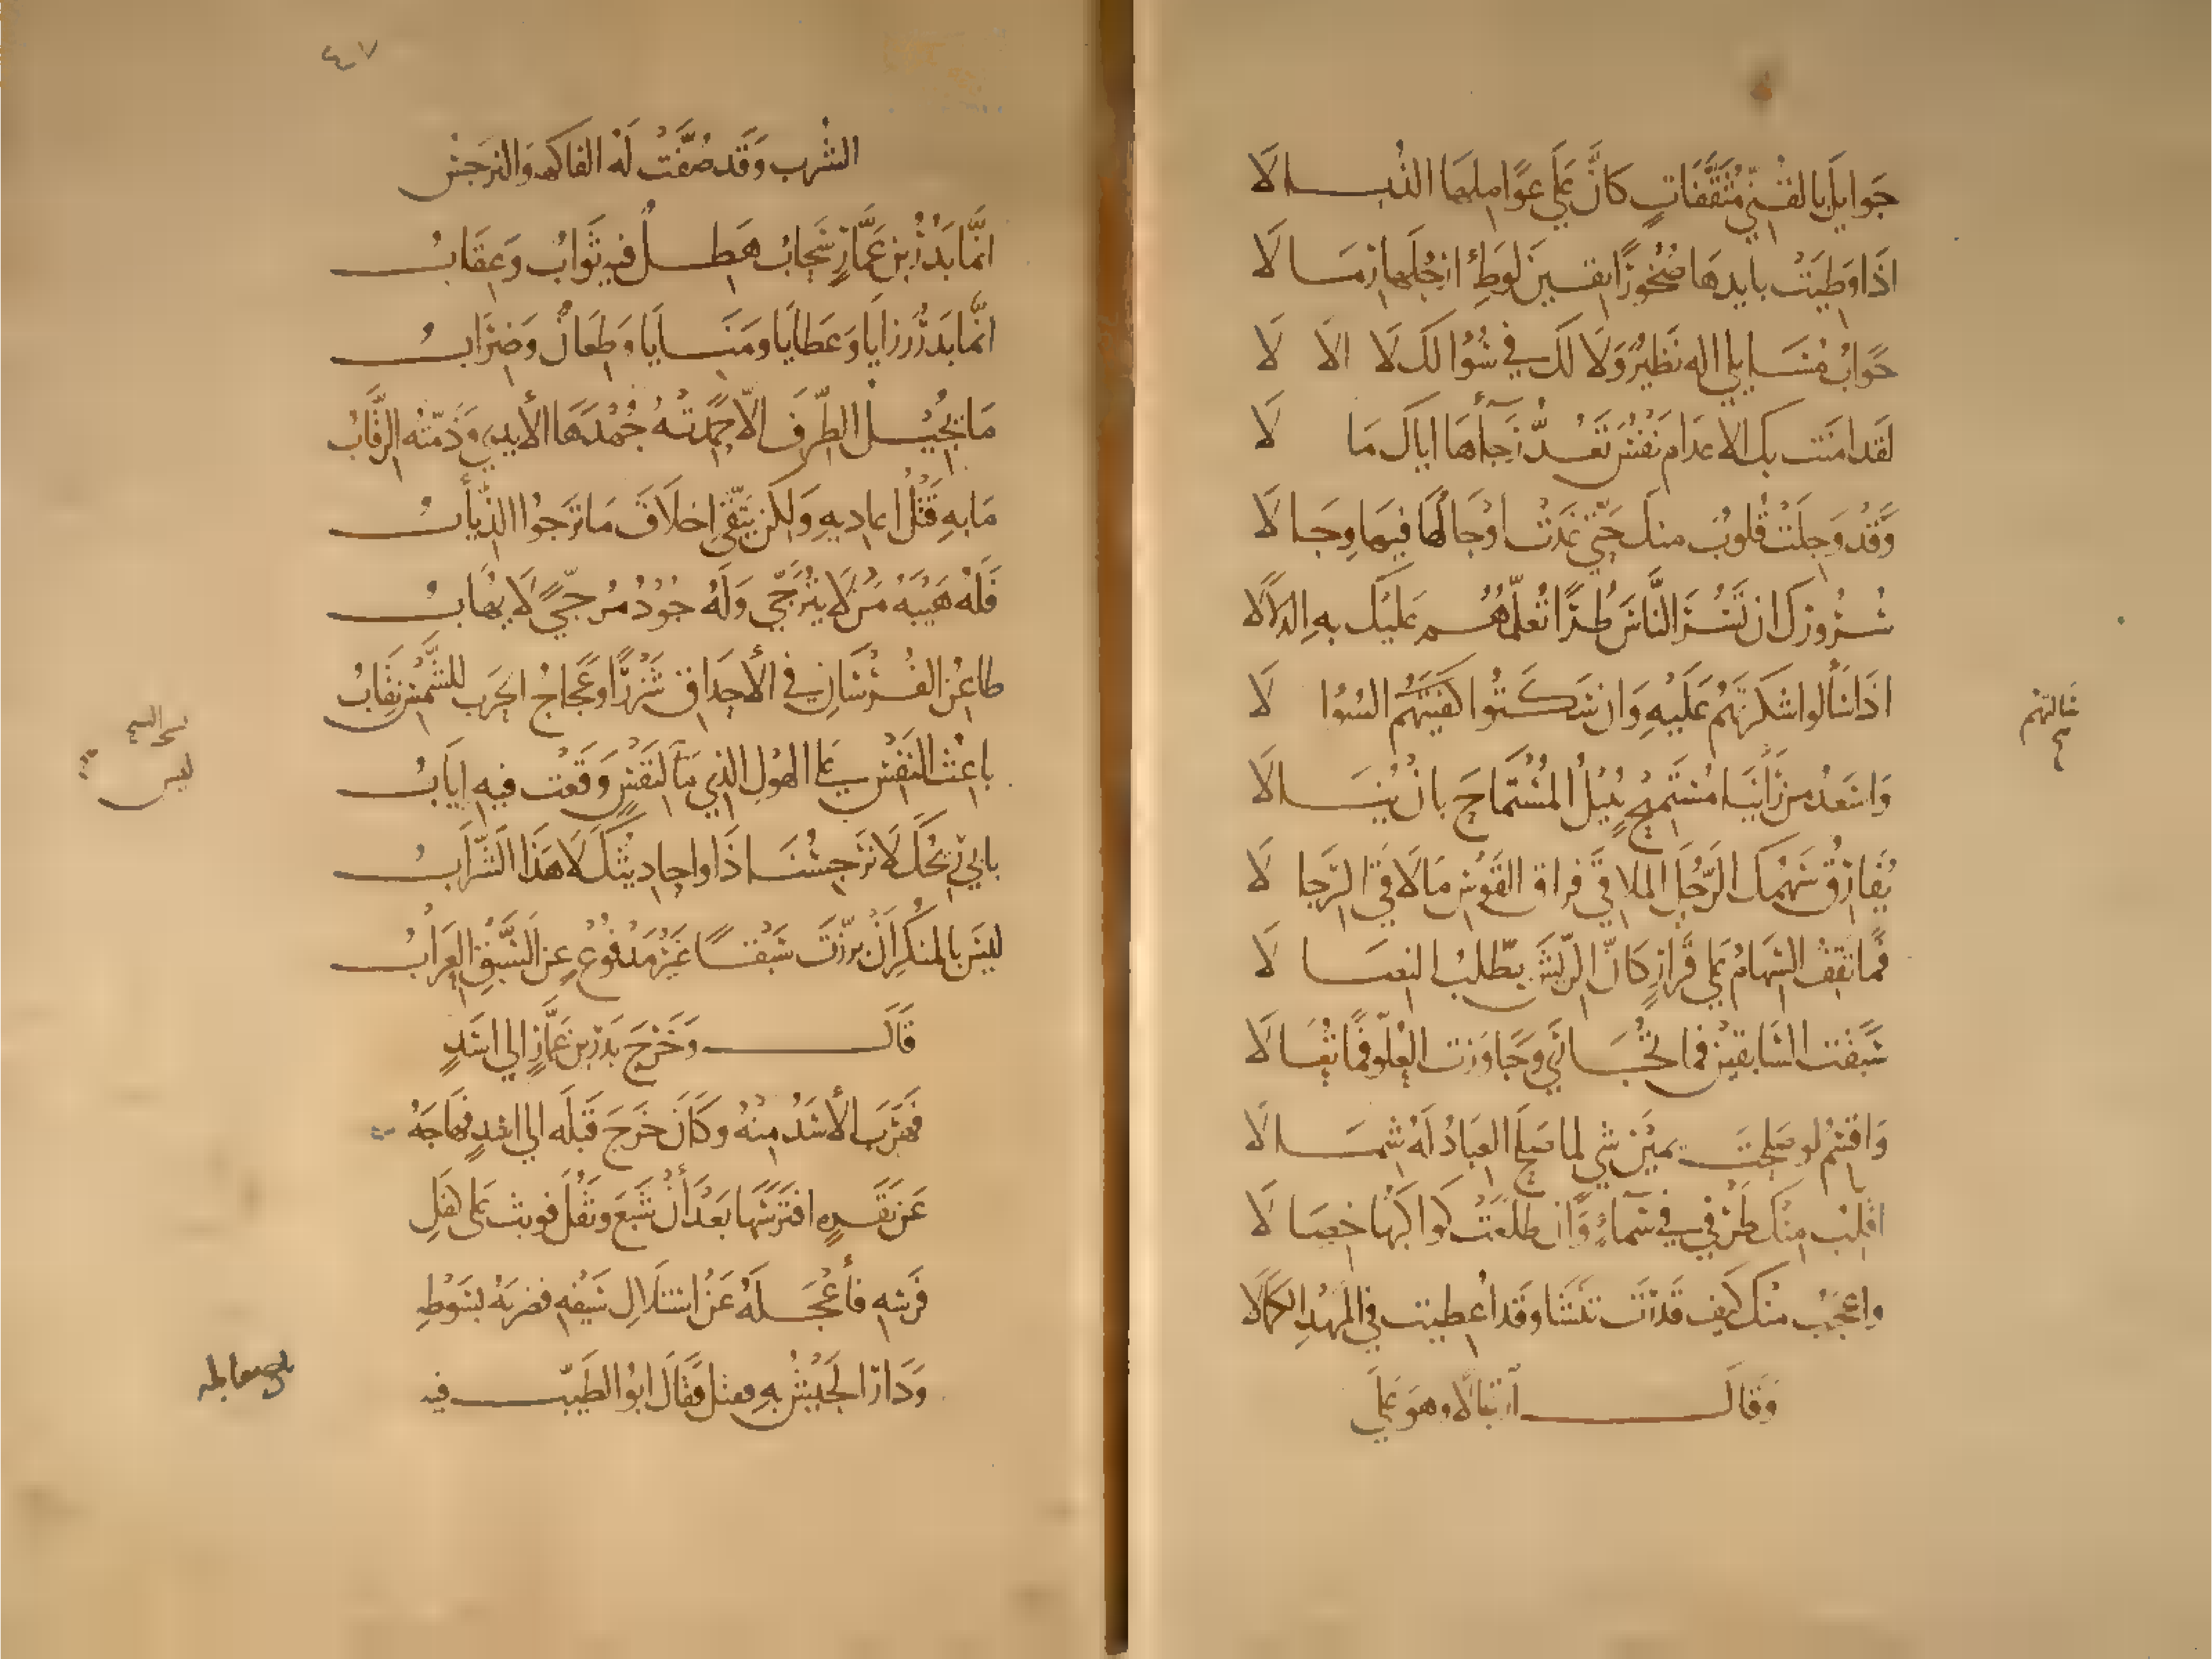 جَوايلَ بالقُنِيّ مُثَقَّفَاتٍ كَانَّ عَلَي عَوامِلِهَا الذُبــالَا
اذَا وَطِيَتْ بايدهَا صُخُورًا يفيــنَ لِوَطءِ ارجُلِهَا رِمَــالَا
جَوابُ مُسَــايلي اله نَظِيرٌ وَلَا لكَ في سُؤالك لَا الَا لَا
لَقد امنَت بك الاعدامَ نَفسٌ تَعُــدُّ رَجآءَها اياكَ مَا لَا
وَقَدْ وَجِلَتْ قُلوبٌ منك حَتّي غَدَتْ اوجَالُهَا فيهَا وِجَــالَا
سُــرُورُكَ ان تَسُــرَّ النَّاسَ طُـرًّا تُعلّمُهُــم عَليْكَ بهِ الدلَالَا
اذَا سَأَلُوا شكَرتَهُمُ عَلَيْهِ وَان سَكَــتُوا سَألتَهُمُ السُؤَا لَا
وَاسَعَدُ مَن رَأَينَــا مُستَمِيحٌ يُنِيْلُ المُسْتَمَاحَ بانْ يُنَــالَا
يُفَارِقُ سَهمُكَ الرَّجُلَ الملاقَي فِراقَ القَوْسِ مَا لَاقَي الرِّجَا لَا
فَمَا تَقِفُ السِّهَامُ عَلي قَرارٍ كَانَّ الرِّيشَ يَطَّلِبُ النِصَــا لَا
سَبَقتَ السَّابِقيْنَ فمَا تُجَــارَي وَجَاوَزتَ العُلُوَّ فَمَا تُعَــالَا
وَاقسِمُ لو صَلحتَ يَميْنَ شيٍ لما صَلحَ العِبَادُ لَهُ شِمَــالَا
اقَلّبُ مِنكَ طَرْفي في سَمآءٍ وَان طلعَتْ كَوَاكِبُهَا خِصَــا لَا
واعجَبُ منكَ كيف قدَرتَ تَنشَا وقَد اُعطِيت في المَهْدِ الكَمالَا
وَقَالَــــــ ارتجَالًا وهوَ عَلَي
سَالتهم
٤٧
الشُرب وَقَد صُفّفَتْ لَهُ الفاكهه وَالنرجِسُ
انَّما بَدْرُ بنُ عَمَّارٍ سَحَابٌ هَطِــلٌ فيهِ ثَوَابٌ وَعِقَابُ
انَّما بَدرٌ رَزَايَا وَعَطايَا ومَنَــايَا وَطِعَانٌ وَضِرَابُ
مَا يُجِيْــلُ الطِّرفَ الَّا حَمِدَتْــهُ جُهْدَهَا الأيدِي وَذَمّتْه الرِّقَابُ
مَا بِهِ قَتْلُ اعادِيهِ وَلكِن يَتَّقي اخلَافَ مَا تَرجُوا الذِّيَابُ
فَلَهُ هَيْبَهُ مَن لَا يُتَرَجّي وَلَهُ جُوْدُ مُرَجّيً لَا يُهَابُ
طاعِنُ الفُــرْسَانِ في الأحدَاقِ شَزرًا وعَجَاجُ الحَربِ للشَّمْسِ نِقَابُ
باعِثُ النَفْسِ عَلي الهَوْلِ الذِي مَا لنَفْسٍ وَقَعَتْ فيهِ اِيَابُ
بابي رِيحُكَ لَا نَرجِسُنَــا ذَا واحاديثُكَ لَا هَذَا الشَرَابُ
ليسَ بالمنكَرِ أنْ برَّزتَ سَبْقــاً غَيْرُ مَدْفُوْعٍ عن السَّبْقِ العِرَابُ
قَالَــــــ وَخَرَجَ بَدْرُ بن عَمَّارٍ الي اسَدٍ
فَهَرَبَ الأسَدُ مِنْهُ وكَانَ خَرَجَ قَبْلَه الي اسَدٍ فهَاجَهُ
عَن بَقَــرهٍ افتَرَسَهَا بَعْدَ أنْ شَبعَ وَثَقُلَ فوثبَ عَلي كفَلِ
فَرَسِهِ فأعْجَــلَهُ عَن استِلالِ سَيْفِهِ فضَربَهُ بسَوْطِهِ
وَدَارَ الجَيْشُ بهِ فقتل فقَالَ ابُو الطَيّبــ فيه